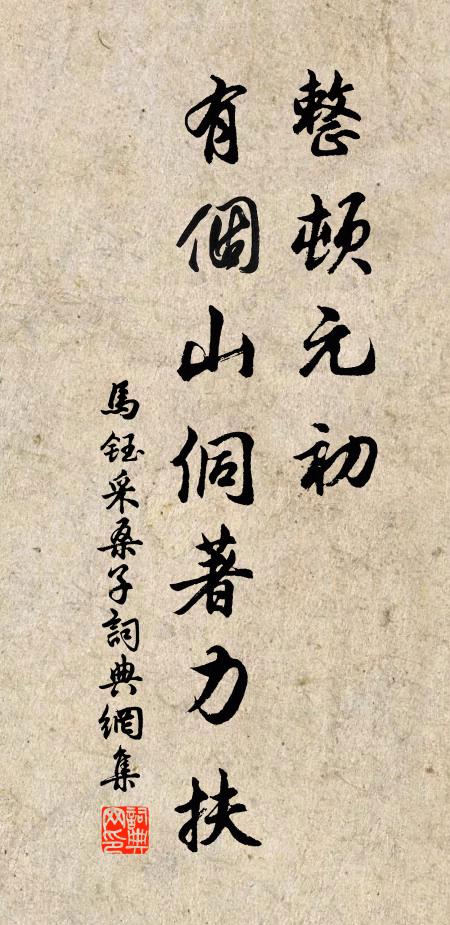 整頓元初
有個山侗著力扶
馬鈺采桑子詞典網集
詞典
網印